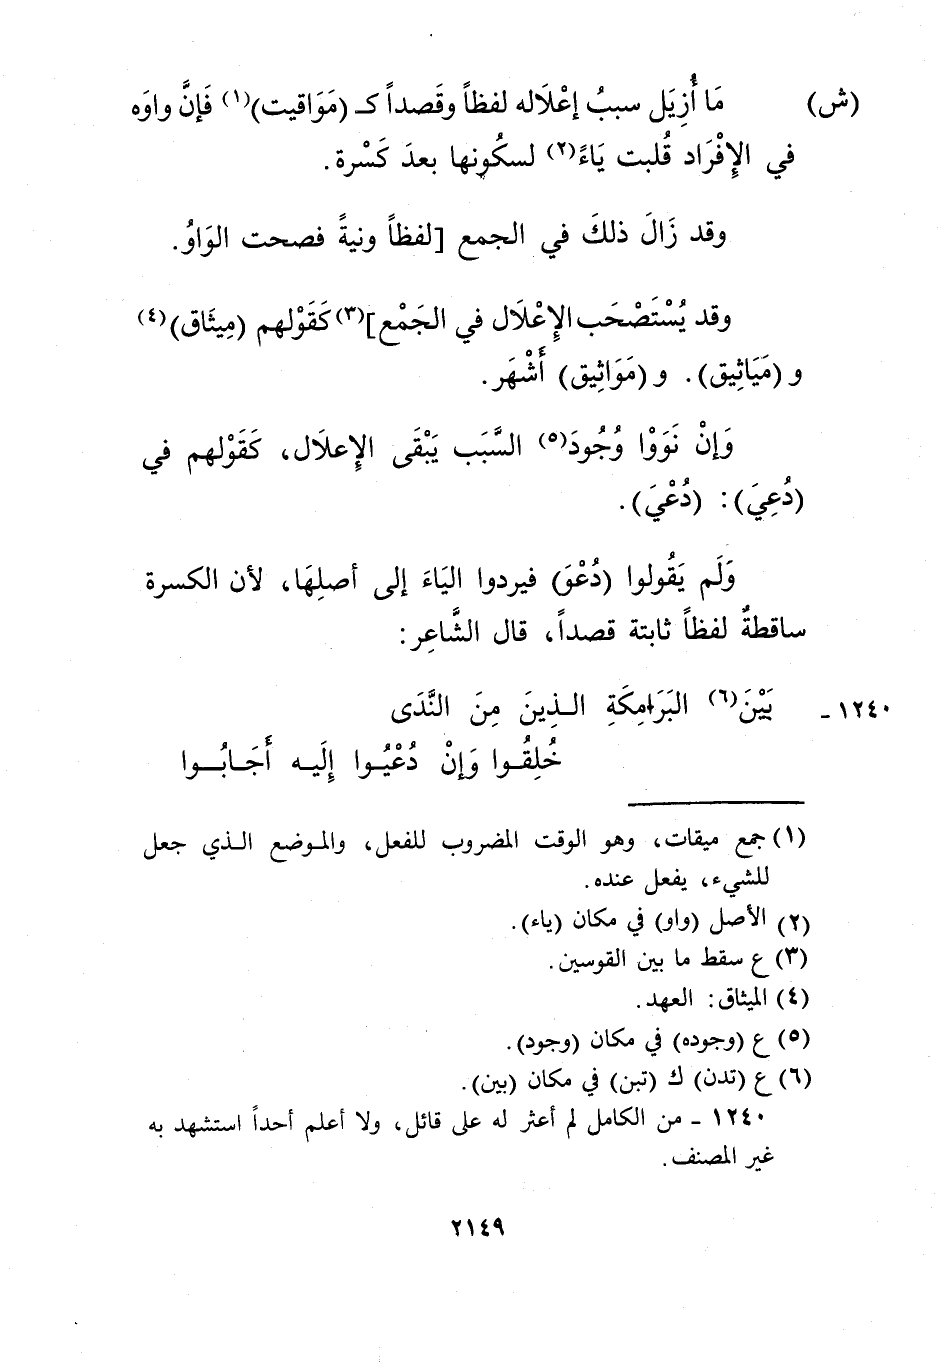 (ش) مَا أُزِيَل سببُ إعْلَاله لفظاً وقَصداً كـ (مَوَاقيت)(١) فَإنَّ واوَه
في الإِفْرَاد قُلبت يَاءً(٢) لسكُونها بعدَ كَسْرة.
وقد زَالَ ذلكَ في الجمع [لفظاً ونيةً فصحت الوَاوُ.
وقد يُسْتَصْحَب الإِعْلَال في الجَمْع](٣) كَقَوْلهم (مِيثَاق)(٤)
و (مَيَاثِيق). و (مَوَاثِيق) أَشْهَر.
وَإنْ نَوَوْا وُجُودَ(٥) السَّبَب يَبْقَى الإِعلَال، كَقَوْلهم في
(دُعِيَ): (دُعْيَ).
وَلَم يَقُولوا (دُعْوَ) فيردوا اليَاءَ إلى أصلِهَا، لأن الكسرة
ساقطةٌ لفظاً ثابتة قصداً، قال الشَّاعِر:
١٢٤٠ - بَيْنَ(٦) البَرَامِكَةِ الـذِينَ مِنَ النَّدَى
خُلِقُـوا وَإنْ دُعْيُـوا إلَيـه أَجَـابُـوا
(١) جمع ميقات، وهو الوقت المضروب للفعل، والموضع الـذي جعل
للشيء، يفعل عنده.
(٢) الأصل (واو) في مكان (ياء).
(٣) ع سقط ما بين القوسين.
(٤) الميثاق: العهد.
(٥) ع (وجوده) في مكان (وجود).
(٦) ع (تدن) ك (تبن) في مكان (بين).
١٢٤٠ - من الكامل لم أعثر له على قائل، ولا أعلم أحداً استشهد به
غير المصنف.
٢١٤٩